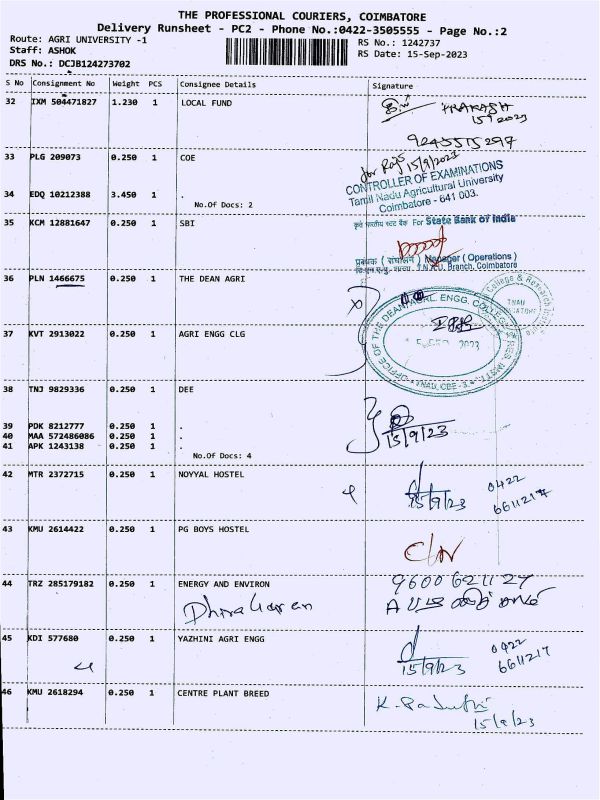 THE PROFESSIONAL COURIERS, COIMBATORE
Delivery Runsheet - PC2 - Phone No.:0422-3505555 - Page No.:2
Route: AGRI UNIVERSITY -1 RS No.: 1242737
Staff: ASHOK RS Date: 15-Sep-2023
DRS No.: DCJB124273702
S No Consignment No Weight PCS Consignee Details Signature
32 IXM 504471827 1.230 1 LOCAL FUND PRAKASH
15/9/2023
9245515297
33 PLG 209073 0.250 1 COE
15/9/2023
CONTROLLER OF EXAMINATIONS
Tamil Nadu Agricultural University
Coimbatore - 641 003.
34 EDQ 10212388 3.450 1 .
No.Of Docs: 2
35 KCM 12881647 0.250 1 SBI
कृते भारतीय स्टेट बैंक For State Bank of India
प्रबंधक ( संचालन ) Manager ( Operations )
T.N.A.U. Branch, Coimbatore
36 PLN 1466675 0.250 1 THE DEAN AGRI
College & Research
TNAU
OFFICE OF THE DEAN AGRL. ENGG. COLLEGE & RES. INSTT.
2023
TNAU, CBE - 3.
37 KVT 2913022 0.250 1 AGRI ENGG CLG
38 TNJ 9829336 0.250 1 DEE
39 PDK 8212777 0.250 1 .
40 MAA 572486086 0.250 1 .
41 APK 1243138 0.250 1 .
15/9/23
No.Of Docs: 4
42 MTR 2372715 0.250 1 NOYYAL HOSTEL
15/9/23 0422
6611217
43 KMU 2614422 0.250 1 PG BOYS HOSTEL
44 TRZ 285179182 0.250 1 ENERGY AND ENVIRON 9600621127
Dhinakaran
45 KDI 577680 0.250 1 YAZHINI AGRI ENGG
15/9/23 0422
6611217
46 KMU 2618294 0.250 1 CENTRE PLANT BREED
15/9/23